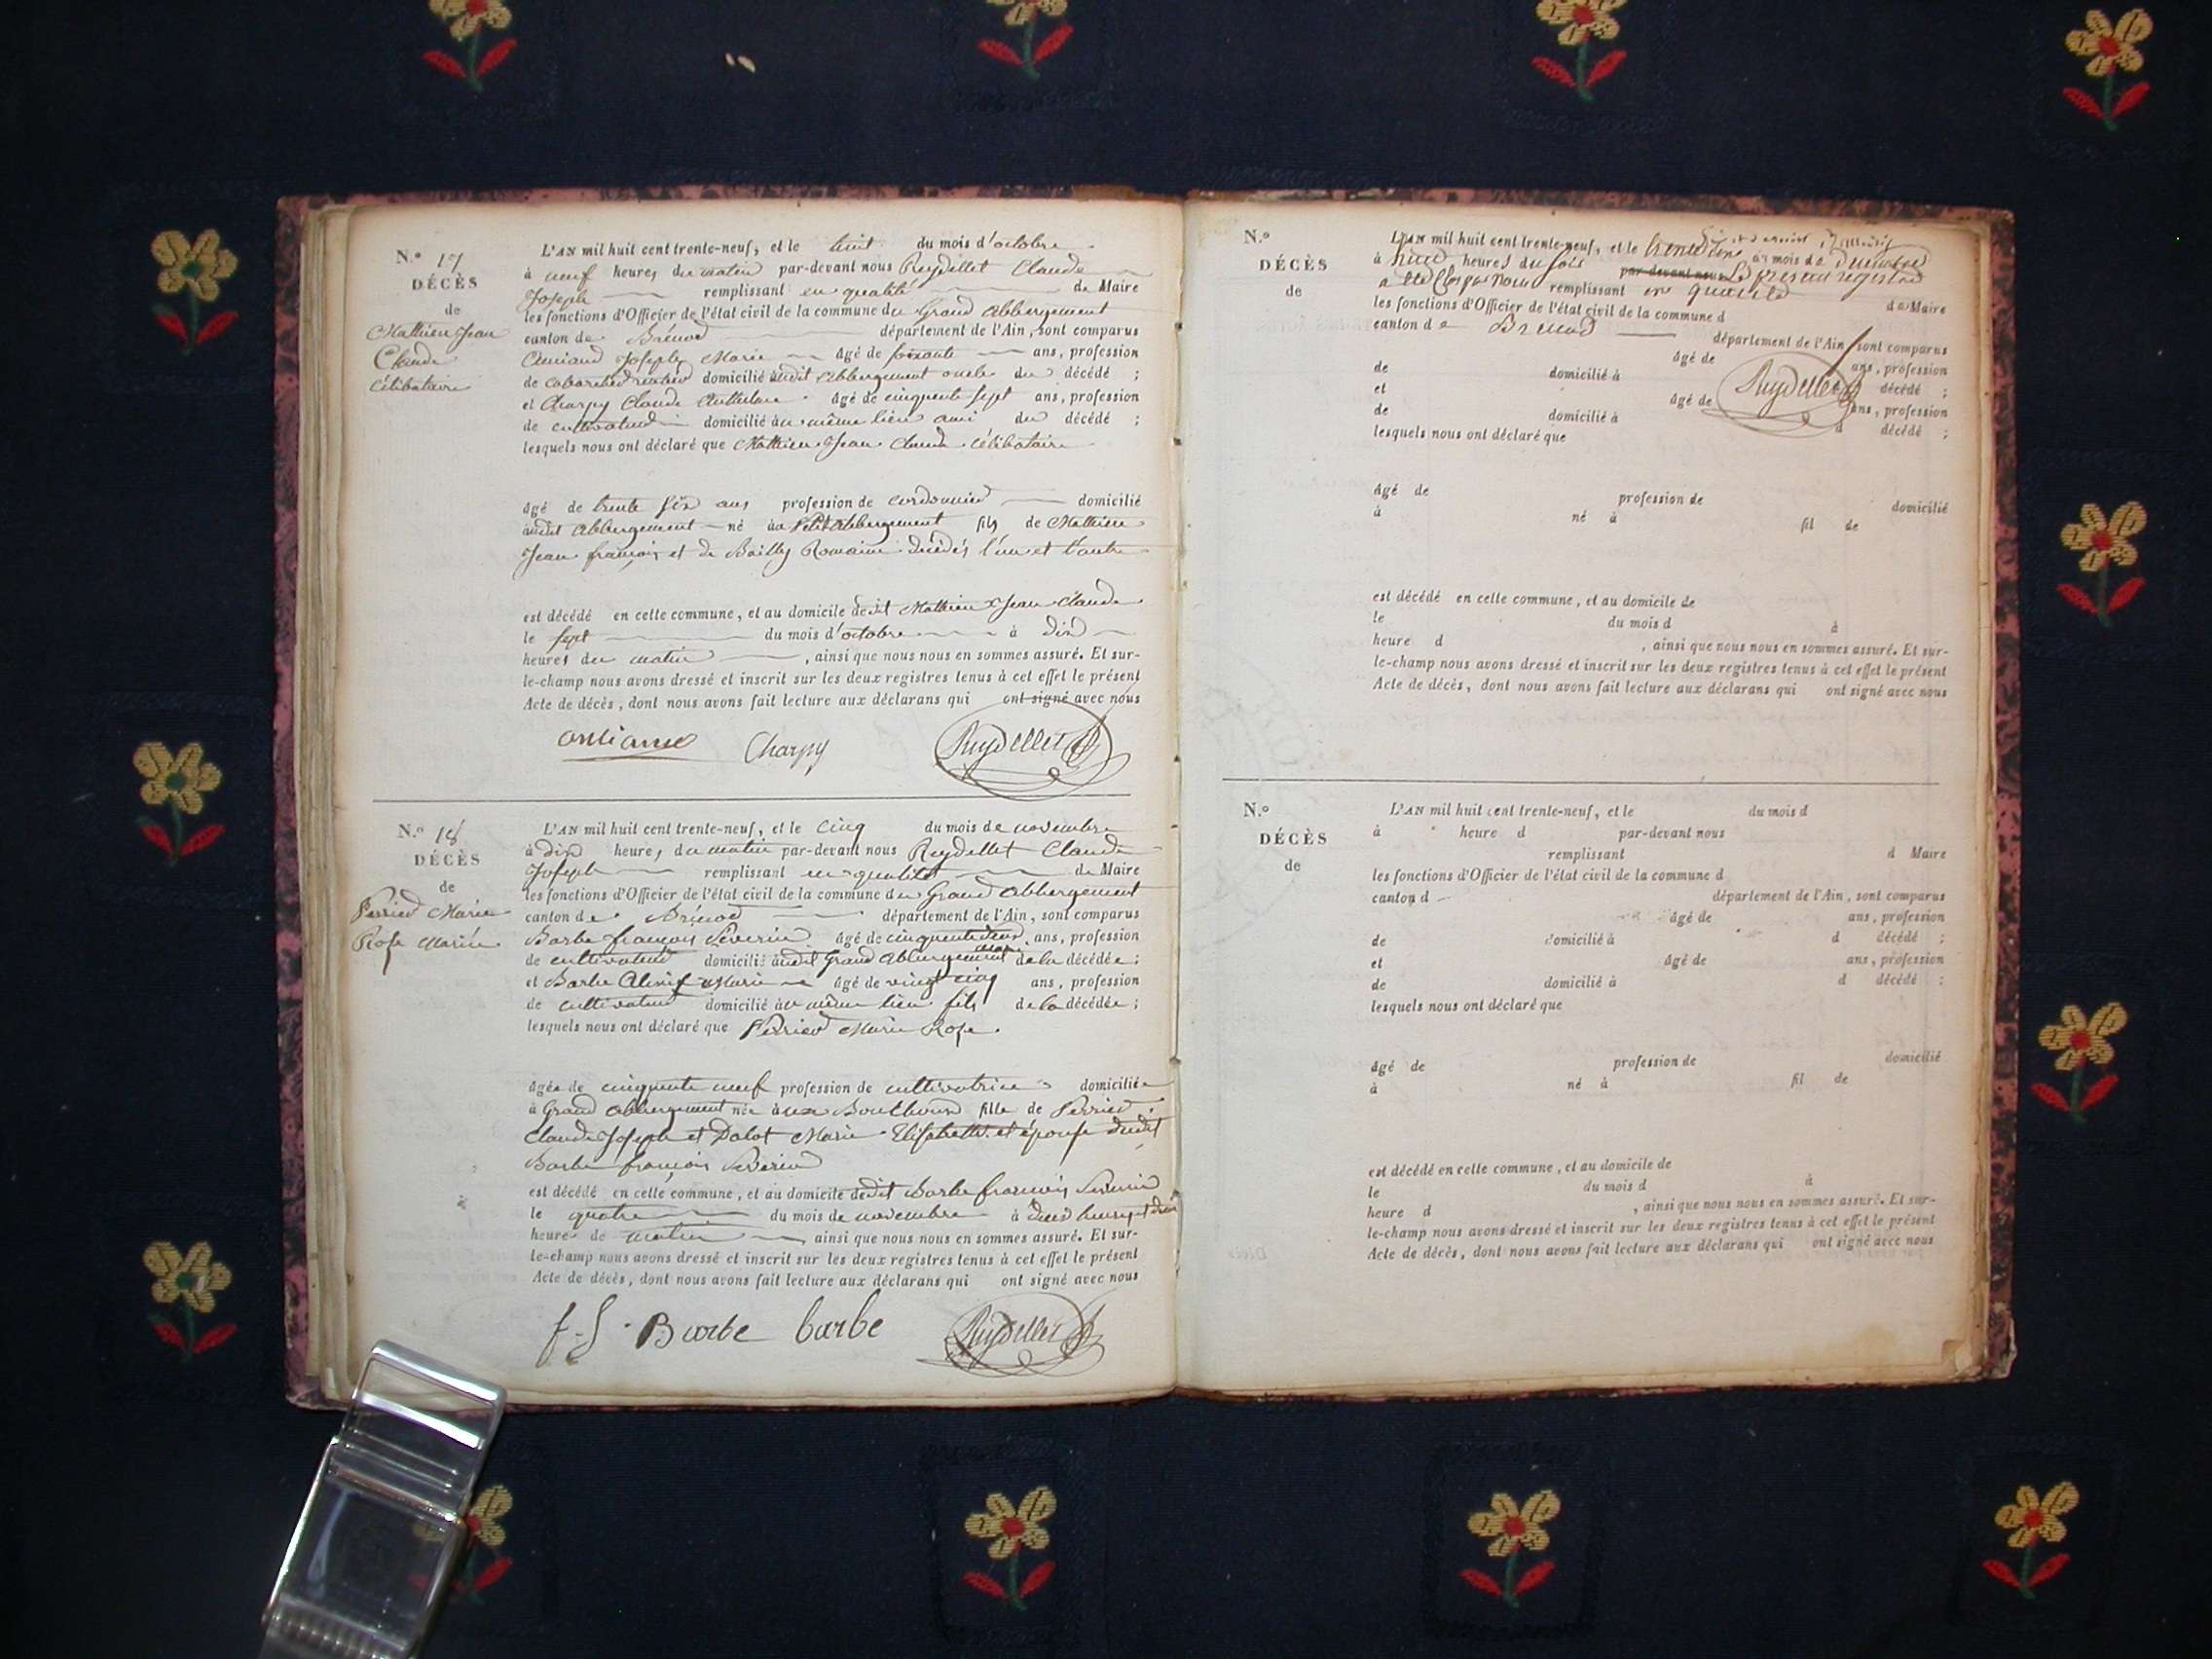 N.° 17
DÉCÈS
de
Mathieu Jean
Claude
Célibataire
L'AN mil huit cent trente-neuf, et le huit du mois d'octobre
à neuf heures du matin par-devant nous Reydellet Claude
Joseph remplissant en qualité de Maire
les fonctions d'Officier de l'état civil de la commune du Grand Abbergement
canton de Brénod département de l'Ain, sont comparus
Joseph Marie âgé de soixante ans, profession
de domicilié audit Abbergement oncle du décédé ;
et Charpy Claude Anthelme âgé de cinquante sept ans, profession
de cultivateur domicilié au même lieu ami du décédé ;
lesquels nous ont déclaré que Mathieu Jean Claude célibataire
âgé de trente six ans profession de cordonnier domicilié
audit Abbergement né au Petit Abbergement fils de Mathieu
Jean françois et de Bailly Romaine décédés l'un et l'autre
est décédé en cette commune, et au domicile dudit Mathieu Jean Claude
le sept du mois d'octobre à dix
heures du matin, ainsi que nous nous en sommes assuré. Et sur-
le-champ nous avons dressé et inscrit sur les deux registres tenus à cet effet le présent
Acte de décès, dont nous avons fait lecture aux déclarans qui ont signé avec nous
Charpy Reydellet
N.° 18
DÉCÈS
de
Perrier Marie
Rose mariée
L'AN mil huit cent trente-neuf, et le cinq du mois de novembre
à dix heures du matin par-devant nous Reydellet Claude
Joseph remplissant en qualité de Maire
les fonctions d'Officier de l'état civil de la commune du Grand Abbergement
canton de Brénod département de l'Ain, sont comparus
Barbe françois Séverin âgé de cinquante deux ans, profession
de cultivateur domicilié audit Grand Abbergement mari de la décédée ;
et Barbe Alexis Marie âgé de vingt cinq ans, profession
de cultivateur domicilié au même lieu fils de la décédée ;
lesquels nous ont déclaré que Perrier Marie Rose
âgée de cinquante neuf profession de cultivatrice domiciliée
à Grand Abbergement née aux Bouthoux fille de Perrier
Claude Joseph et Dalot Marie Elisabeth et épouse dudit
Barbe françois Séverin
est décédé en cette commune, et au domicile dudit Barbe françois Séverin
le quatre du mois de novembre à deux heures et demi
heure de matin, ainsi que nous nous en sommes assuré. Et sur-
le-champ nous avons dressé et inscrit sur les deux registres tenus à cet effet le présent
Acte de décès, dont nous avons fait lecture aux déclarans qui ont signé avec nous
f-S Barbe barbe Reydellet
N.°
DÉCÈS
de
L'AN mil huit cent trente-neuf, et le trente un du mois de Decembre
à heures du soir par-devant nous Le présent registre
a été Clos par nous remplissant en qualité
les fonctions d'Officier de l'état civil de la commune d de Maire
canton de Brenod département de l'Ain, sont comparus
âgé de ans, profession
de domicilié à Reydellet décédé ;
et âgé de ans, profession
de domicilié à d décédé ;
lesquels nous ont déclaré que
âgé de profession de domicilié
à né à fil de
est décédé en cette commune, et au domicile de
le du mois d à
heure d , ainsi que nous nous en sommes assuré. Et sur-
le-champ nous avons dressé et inscrit sur les deux registres tenus à cet effet le présent
Acte de décès, dont nous avons fait lecture aux déclarans qui ont signé avec nous
N.°
DÉCÈS
de
L'AN mil huit cent trente-neuf, et le du mois d
à heure d par-devant nous
remplissant d Maire
les fonctions d'Officier de l'état civil de la commune d
canton d département de l'Ain, sont comparus
âgé de ans, profession
de domicilié à d décédé ;
et âgé de ans, profession
de domicilié à d décédé ;
lesquels nous ont déclaré que
âgé de profession de domicilié
à né à fil de
est décédé en cette commune, et au domicile de
le du mois d à
heure d , ainsi que nous nous en sommes assuré. Et sur-
le-champ nous avons dressé et inscrit sur les deux registres tenus à cet effet le présent
Acte de décès, dont nous avons fait lecture aux déclarans qui ont signé avec nous